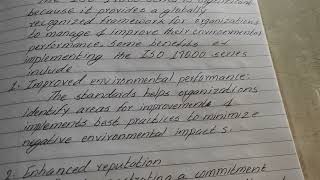 because it provides a globally
recognized framework for organizations
to manage & improve their environmental
performance. Some benefits of
implementing the ISO 14000 series
include
1. Improved environmental performance:
The standards helps organizations
identify areas for improvements &
implements best practices to minimize
negative environmental impacts.
2. Enhanced reputation
a commitment